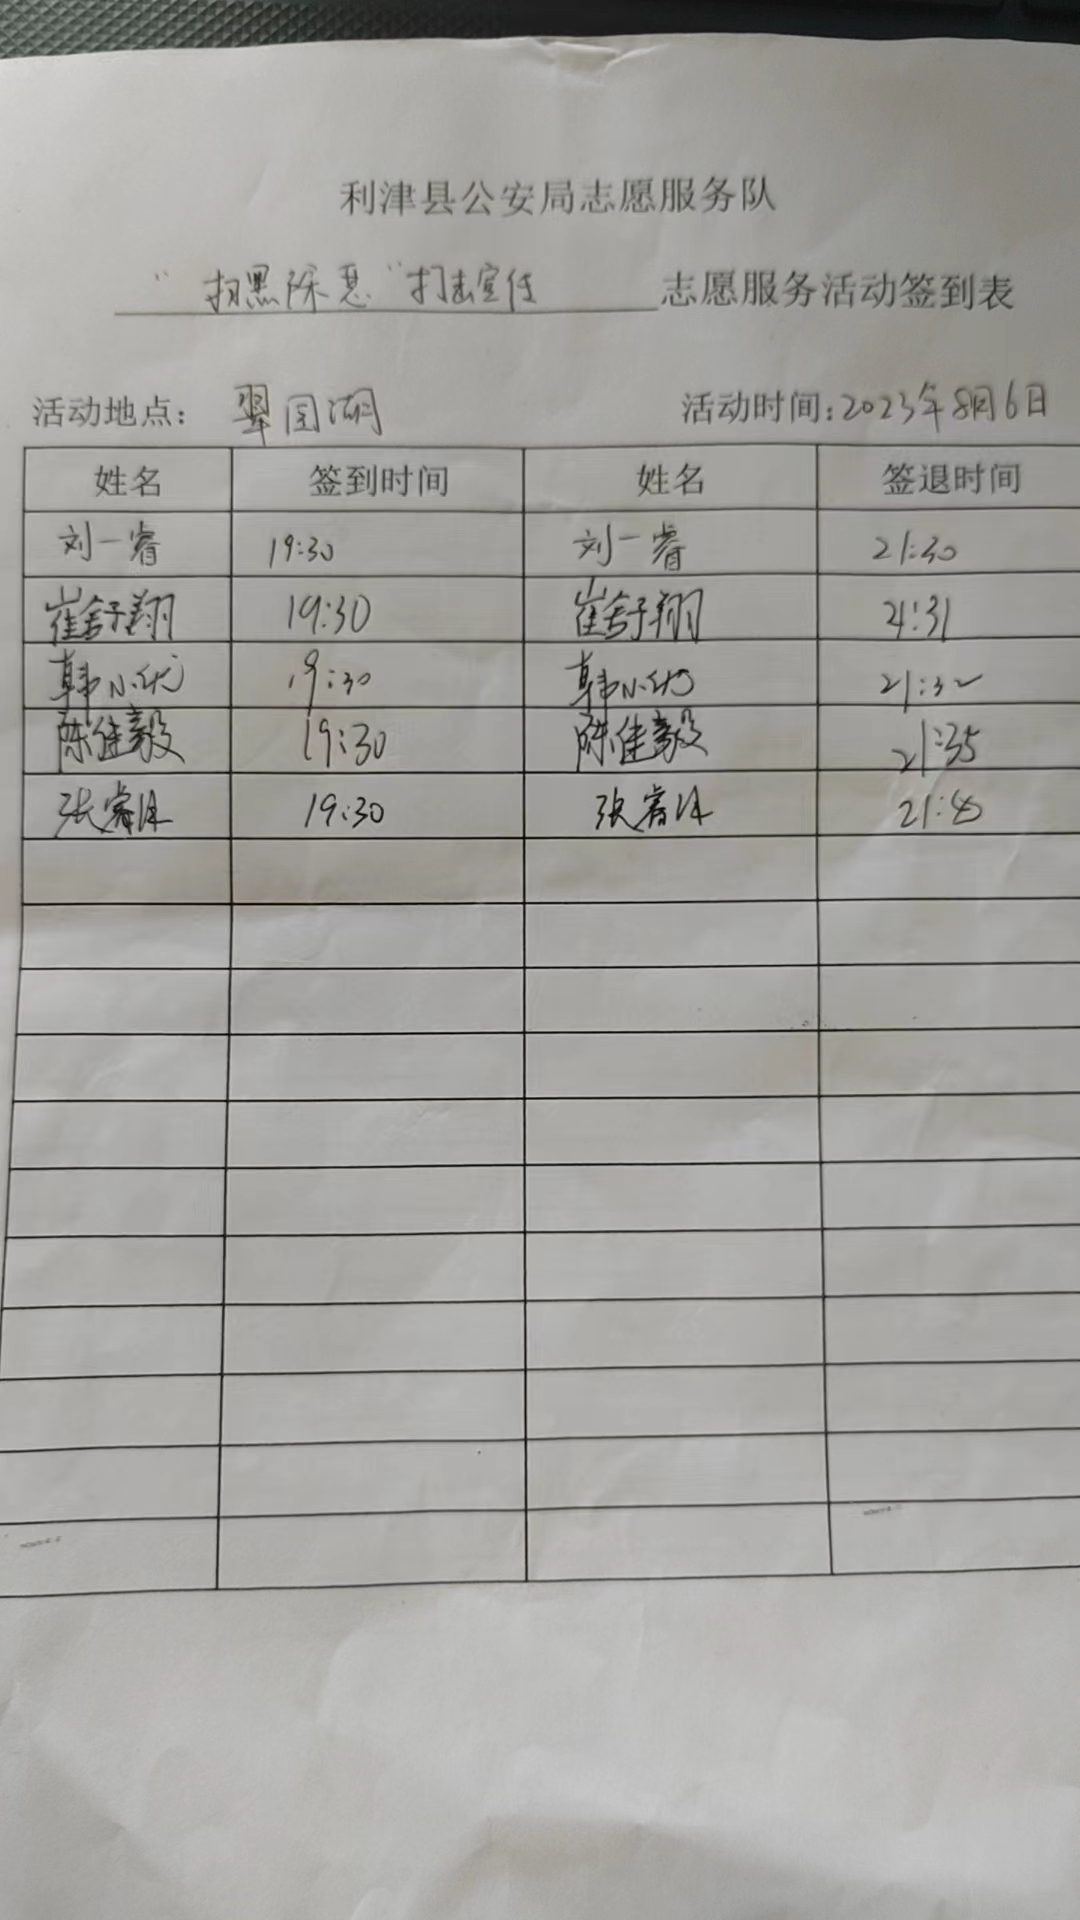 利津县公安局志愿服务队
"扫黑除恶"打击宣传 志愿服务活动签到表
活动地点: 翠园湖 活动时间:2023年8月6日
姓名 签到时间 姓名 签退时间
刘一睿 19:30 刘一睿 21:30
崔舒翔 19:30 崔舒翔 21:31
韩小优 19:30 韩小优 21:32
陈佳毅 19:30 陈佳毅 21:35
张睿 19:30 张睿 21:40